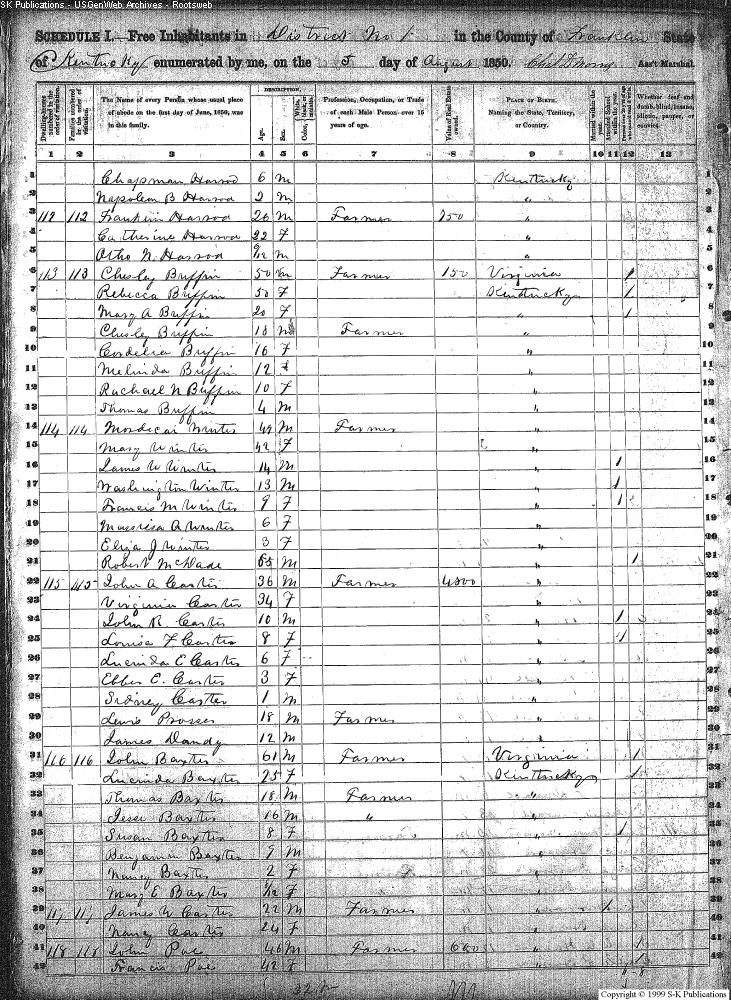 SK Publications - USGenWeb Archives - Rootsweb
SCHEDULE I.—Free Inhabitants in District No 1 in the County of Franklin State
of Kentucky enumerated by me, on the 5 day of August 1850. Ass't Marshal.
Dwelling-houses numbered in the order of visitation. Families numbered in the order of visitation. The Name of every Person whose usual place of abode on the first day of June, 1850, was in this family. DESCRIPTION. Age. Sex. Color, White, black, or mulatto. Profession, Occupation, or Trade of each Male Person over 15 years of age. Value of Real Estate owned. PLACE OF BIRTH. Naming the State, Territory, or Country. Married within the year. Attended School within the year. Whether deaf and dumb, blind, insane, idiotic, pauper, or convict.
1 2 3 4 5 6 7 8 9 10 11 12 13
1 Chapman Harrod 6 M Kentucky 1
2 Napoleon B Harrod 2 M " 2
3 112 112 Franklin Harrod 26 M Farmer 250 " 3
4 Catherine Harrod 22 F " 4
5 Otho N. Harrod 9/12 M " 5
6 113 113 Chesley Buffin 50 M Farmer 150 Virginia 1 6
7 Rebecca Buffin 50 F Kentucky 1 7
8 Mary A Buffin 20 F " 1 8
9 Chesley Buffin 18 M Farmer " 9
10 Cordelia Buffin 16 F " 10
11 Melinda Buffin 12 F " 11
12 Rachael N Buffin 10 F " 12
13 Thomas Buffin 4 M " 13
14 114 114 Mordecai Winter 49 M Farmer " 14
15 Mary Winter 42 F " 15
16 James W Winter 14 M " 1 16
17 Washington Winter 13 M " 1 17
18 Francis M Winter 9 F " 1 18
19 A Winter 6 F " 19
20 Eliza J Winter 3 F " 20
21 Robert McDade 65 M " 1 21
22 115 115 John A Carter 36 M Farmer 4800 " 22
23 Virginia Carter 34 F " 23
24 John R. Carter 10 M " 1 24
25 Louisa F Carter 8 F " 1 25
26 Lucinda E Carter 6 F " 26
27 Ebber E. Carter 3 F " 27
28 Sidney Carter 1 M " 28
29 Lewis Prosser 18 M Farmer " 29
30 James Dandy 12 M " 30
31 116 116 John Baxter 61 M Farmer Virginia 1 31
32 Lucinda Baxter 25 F Kentucky 1 32
33 Thomas Baxter 18 M Farmer " 33
34 Jesse Baxter 16 M " " 34
35 Susan Baxter 8 F " 1 35
36 Benjamin Baxter 9 M " 36
37 Nancy Baxter 2 F " 37
38 Mary E Baxter F " 38
39 117 117 James W Carter 22 M Farmer " 1 39
40 Nancy Carter 24 F " 40
41 118 118 John Pae 46 M Farmer 600 " 1 41
42 Francis Pae 42 F " 42
Copyright © 1999 S-K Publications